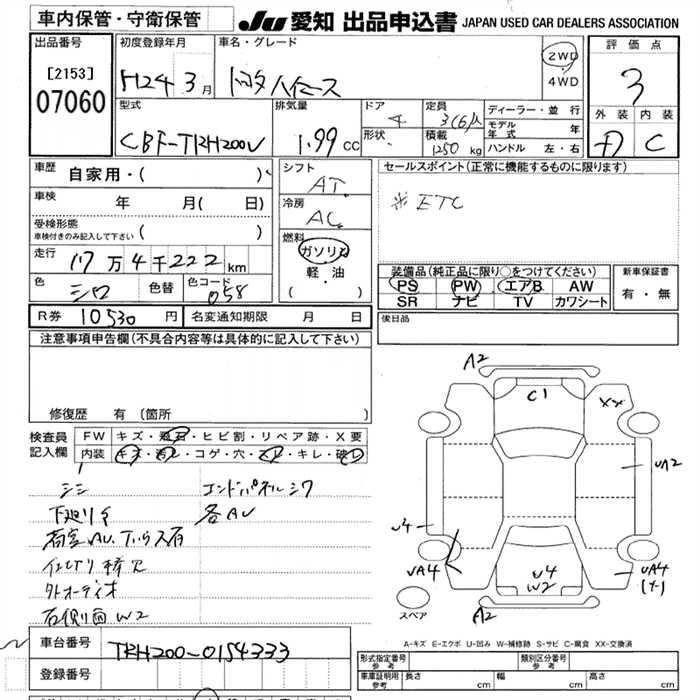 車内保管・守衛保管 JU 愛知 出品申込書 JAPAN USED CAR DEALERS ASSOCIATION
出品番号
[2153]
07060
初度登録年月
H24 3月
車名・グレード
トヨタ ハイエース
2WD
4WD
評価点
3
型式
CBF-TRH200V
排気量
1.99 cc
ドア
4
形状
定員
3(6)人
積載
1250 kg
ディーラー・並行
モデル年式 年
ハンドル 左・右
外装 内装
D C
車歴 自家用・( )
車検 年 月( 日)
受検形態
車検付きのみ記入して下さい ( )
走行 17万4千222km
色 シロ 色替 色コード 058
シフト
AT
冷房
AC
燃料
ガソリン
軽・油
( )
セールスポイント(正常に機能するものに限ります)
※ ETC
装備品(純正品に限り○をつけてください)
PS PW エアB AW
SR ナビ TV カワシート
新車保証書
有・無
R券 10530 円 名変通知期限 月 日
後日品
注意事項申告欄(不具合内容等は具体的に記入して下さい)
修復歴 有(箇所 )
検査員記入欄
FW キズ・飛石・ヒビ割・リペア跡・X要
内装 キズ・汚レ・コゲ・穴・スレ・キレ・破レ
シミ エンドパネルシワ
下廻りサ 各AU
荷室AU、
外オーディオ
右側面W2
A2
C1
XX
UA2
U4
UA4
U4
W2
UA4
A2
スペア
A-キズ E-エクボ U-凹み W-補修跡 S-サビ C-腐食 XX-交換済
車台番号 TRH200-0154333
登録番号
形式指定番号 参考 類別区分番号 参考
車庫証明用 参考 長さ cm 幅 cm 高さ cm